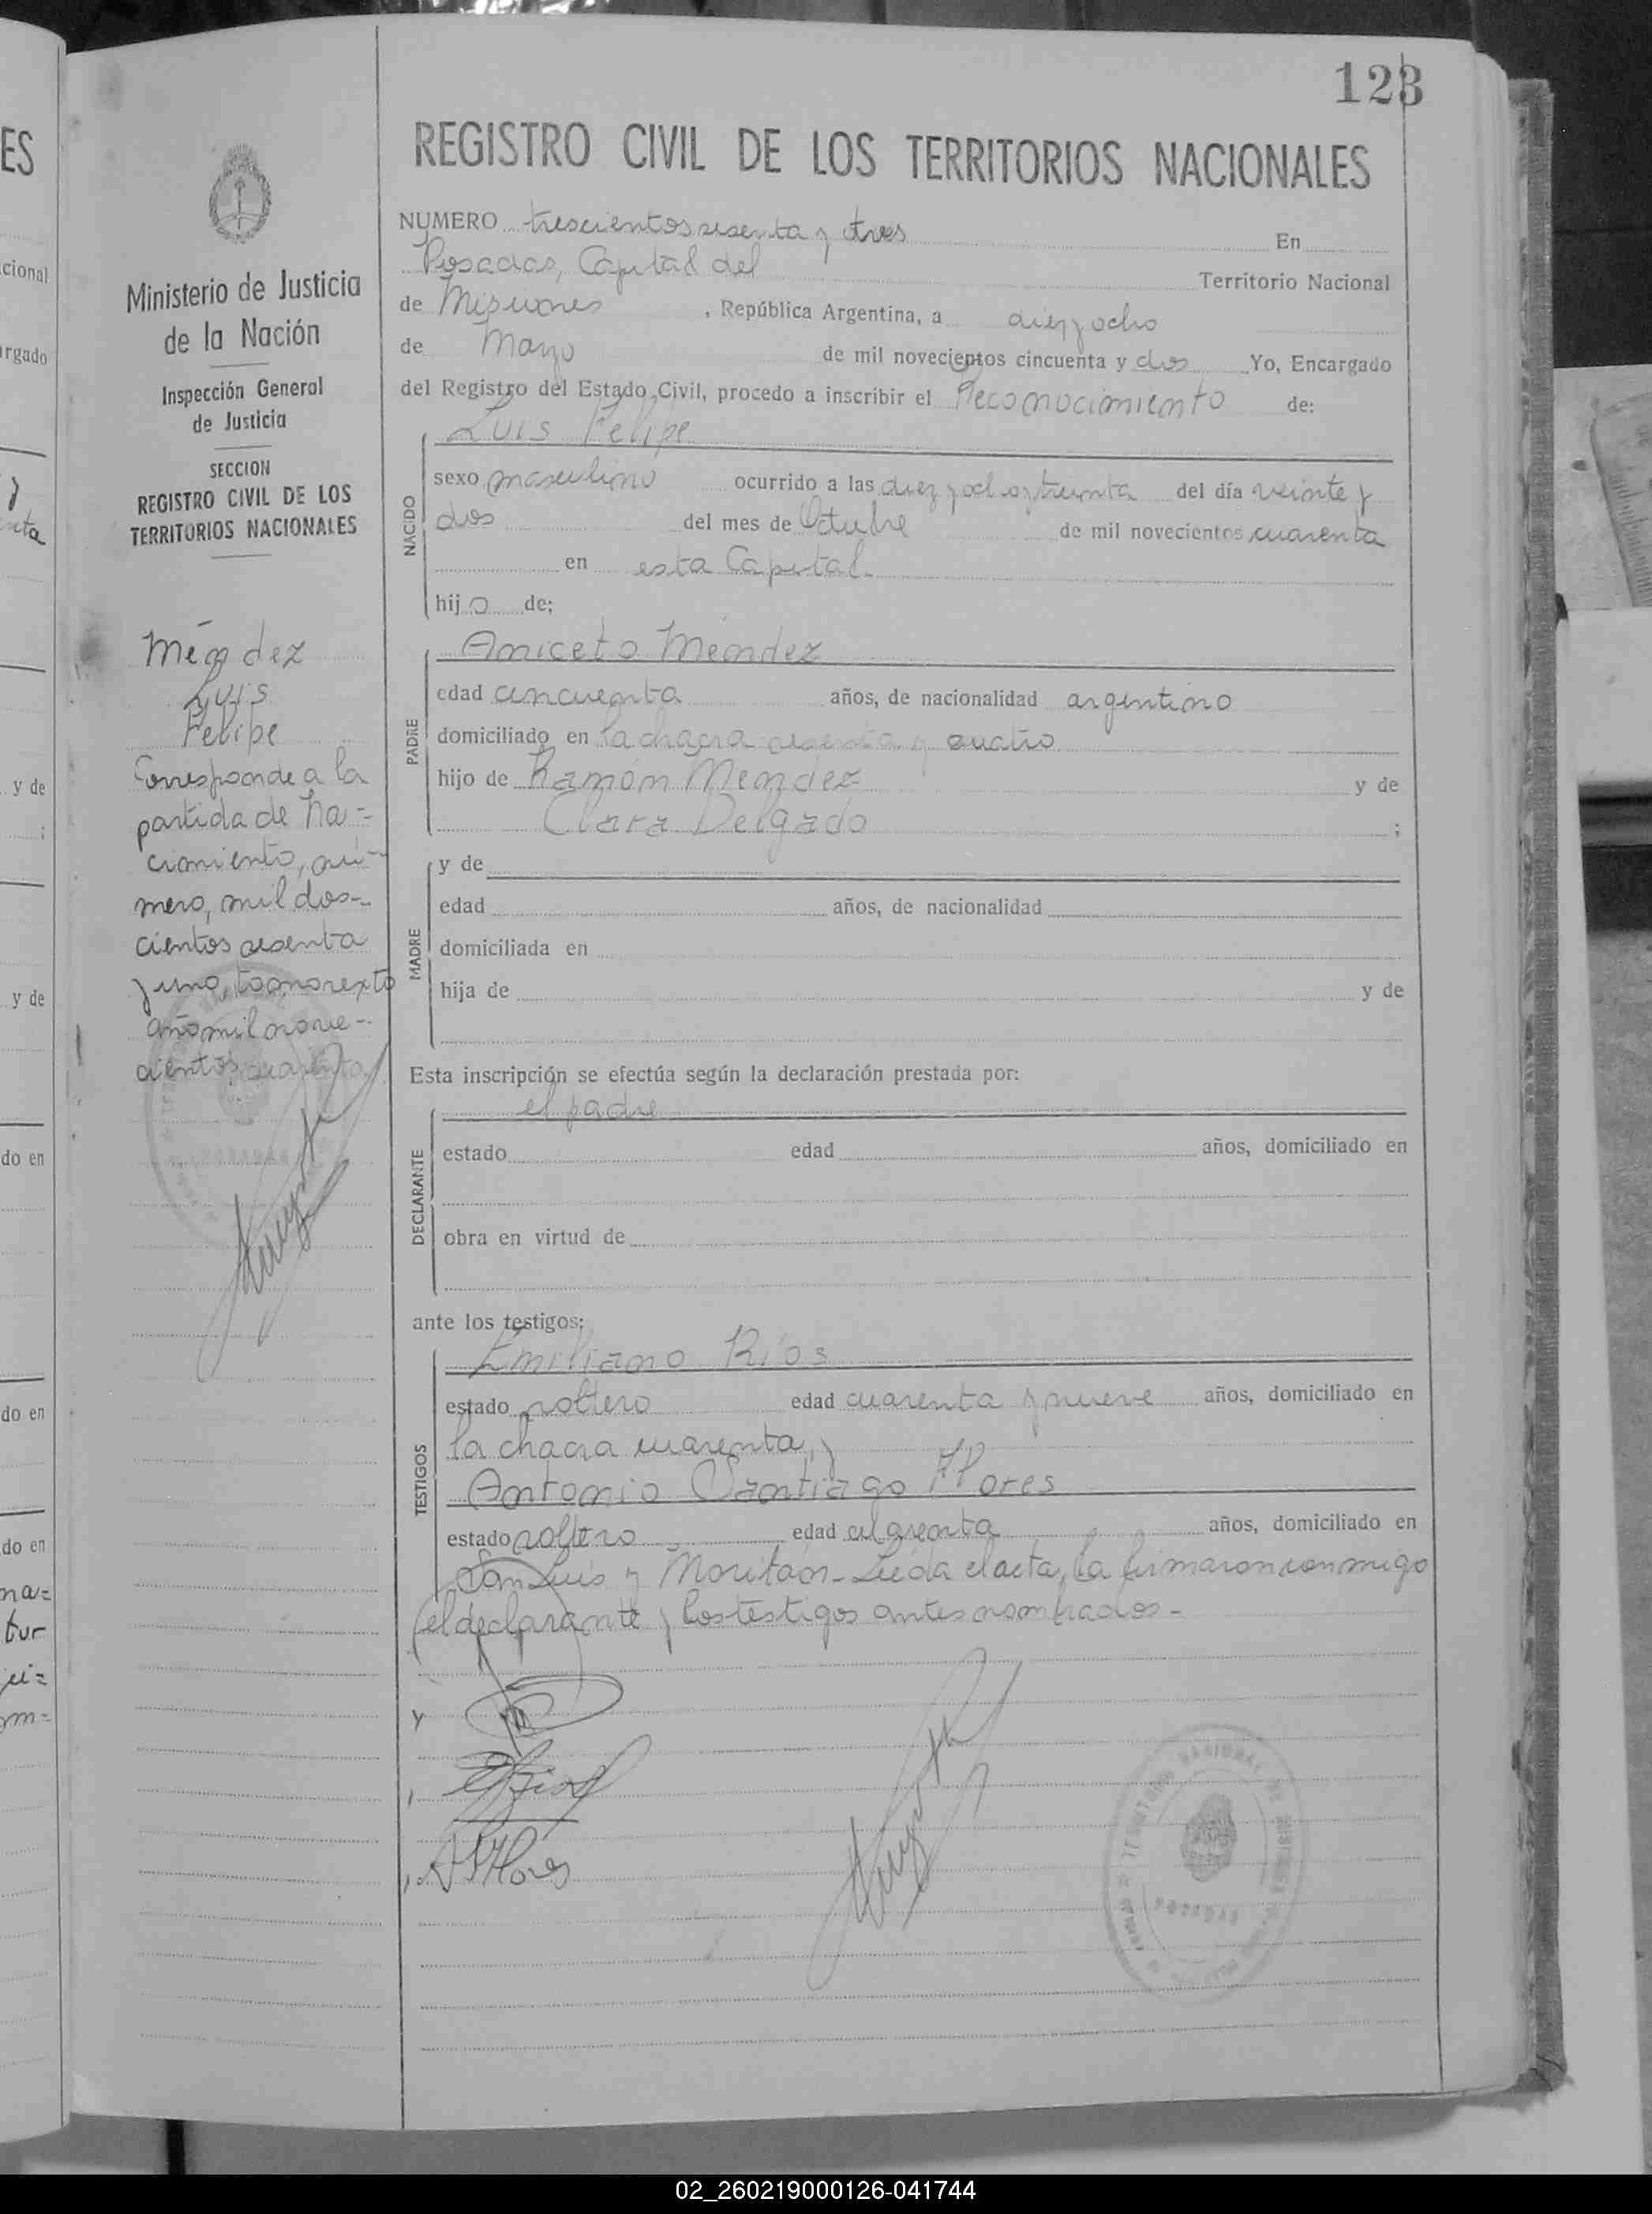 123
REGISTRO CIVIL DE LOS TERRITORIOS NACIONALES
Ministerio de Justicia
de la Nación
Inspección General
de Justicia
SECCION
REGISTRO CIVIL DE LOS
TERRITORIOS NACIONALES
Méndez
Luis
Felipe
Corresponde a la
partida de na-
cimiento, nú-
mero, mil dos-
cientos sesenta
y uno, tomo sexto
año mil nove-
cientos cuarenta
NUMERO trescientos sesenta y tres En
Posadas, Capital del Territorio Nacional
de Misiones, República Argentina, a diez y ocho
de Mayo de mil novecientos cincuenta y dos Yo, Encargado
del Registro del Estado Civil, procedo a inscribir el Reconocimiento de:
Luis Felipe
NACIDO
sexo masculino ocurrido a las diez y ocho y treinta del día veinte y
dos del mes de Octubre de mil novecientos cuarenta
en esta Capital.
hijo de;
PADRE
Aniceto Méndez
edad cincuenta años, de nacionalidad argentino
domiciliado en la chacra sesenta y cuatro
hijo de Ramón Mendez y de
Clara Delgado ;
MADRE
y de
edad años, de nacionalidad
domiciliada en
hija de y de
Esta inscripción se efectúa según la declaración prestada por:
el padre
DECLARANTE
estado edad años, domiciliado en
obra en virtud de
ante los testigos:
TESTIGOS
Emiliano Ríos
estado soltero edad cuarenta y nueve años, domiciliado en
la chacra cuarenta, y
Antonio Santiago Flores
estado soltero edad cuarenta años, domiciliado en
San Luis y Moritán- Leida el acta, la firmaron conmigo
el declarante y los testigos antes nombrados-
ERios
ASFlores
ES
cional
rgado
y de
y de
do en
do en
do en
na=
tur
02_260219000126-041744